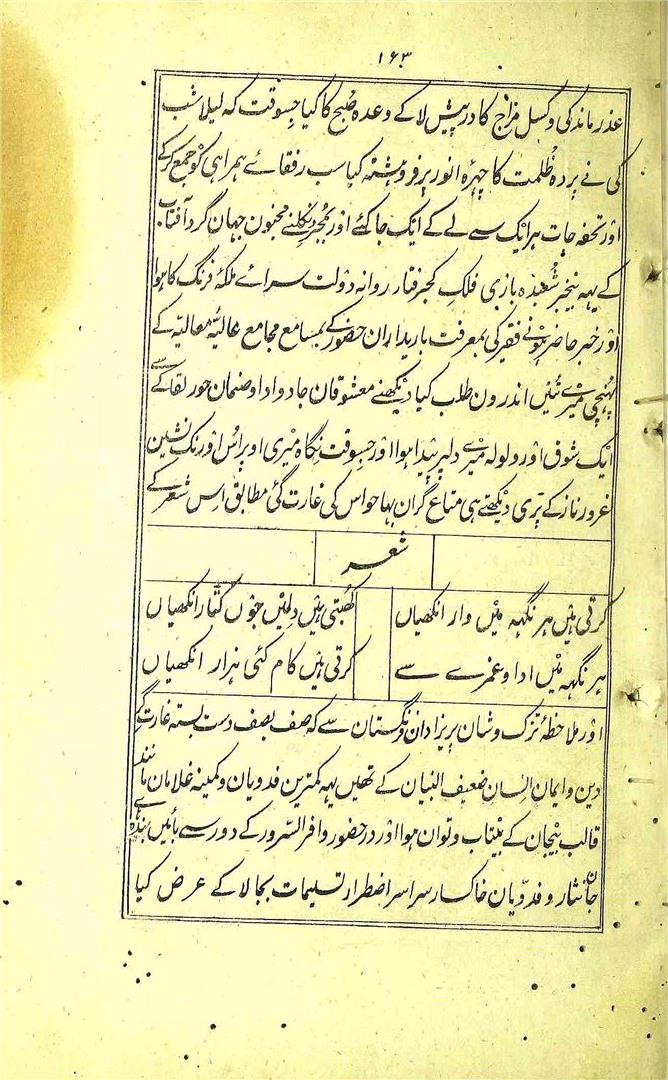 ۱۶۳
عذر ماندگی و کسل مزاج کا درپیش لا کے وعدہ صبح کا کیا جسوقت کہ لیلاے شب
کی نے پردہ ظلمت کا چہرہ انور پر فروہشتہ کیا سب رفقاے ہمراہی کو جمع کرکے
اور تحفہ جات ہر ایک سے لے کے ایک جا کئے اور بمجرد نکلنے مجنون جہان گرد آفتاب
کے یہہ بیخبر شعبدہ بازی فلک کجرفتار روانہ دولت سراے ملکۂ فرنگ کا ہوا
اور خبر حاضر ہونے فقیر کی بمعرفت باریداران حضور کے بمسامع مجامع عالیہ معالیہ کے
پہنچی میرے تئیں اندرون طلب کیا دیکھنے معشوقان جادو ادا و صنمان حور لقا کے سے
ایک شوق اور ولولہ میرے دلپر پیدا ہوا اور جسوقت نگاہ میری اوپر اس اورنگ نشین
غرور ناز کے پڑی دیکھتے ہی متاع گران بہا حواس کی غارت گئی مطابق اس شعر کے
شعر
کرتی ہیں ہر نگہہ میں وار انکھیاں کھبتی ہیں دلمیں جوں کٹار انکھیاں
ہر نگہہ میں ادا و غمزے سے کرتی ہیں کام کئی ہزار انکھیاں
اور ملاحظۂ ترک وشان پریزادان فرنگستان سے کہ صف بصف دست بستہ غارت گر
دین و ایمان انسان ضعیف البنیان کے تھیں یہہ کمترین فدویان و کمینہ غلامان مانند
قالب بیجان کے بیتاب و توان ہوا اور در حضور وافر السرور کے دور سے بائیں بندہ ہاے
جان نثار و فدویان خاکسار سراسر اضطرار تسلیمات بجا لا کے عرض کیا